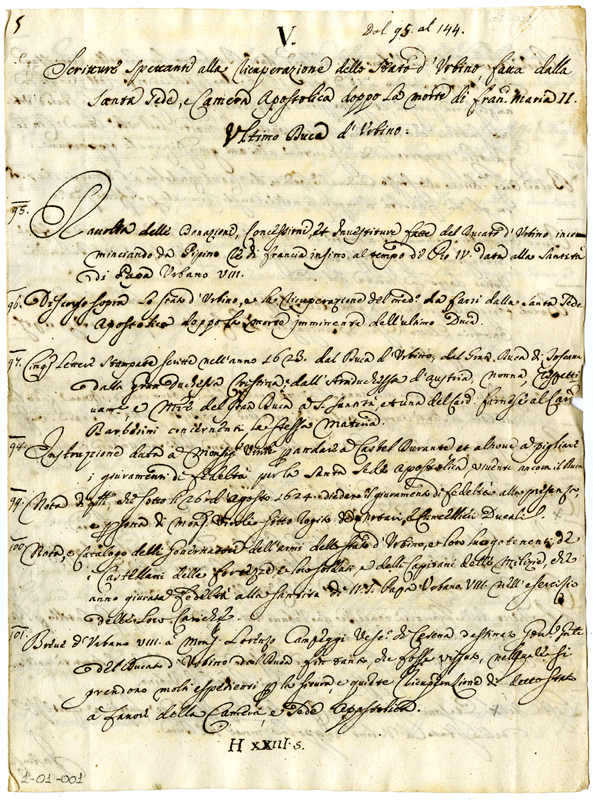 5
V.
Dal 95. al 144.
Scritture Spettanti alla Ricuperazione dello Stato d'Urbino fatta dalla
Santa Sede, e Camera Apostolica doppo La morte di Fran. Maria II.
Ultimo Duca d'Urbino.
95. Raccolta delle Donazioni, Concessioni, et Investiture fatte del Ducato d'Urbino inco-
minciando da Pipino Rè di Francia insino al tempo di Pio IV. data alla Santità
di Papa Urbano VIII.
96. Discorso sopra Lo stato d'Urbino, e la Ricuperazione del med.o da farsi dalla Santa Sede
Apostolica doppo la morte imminente dell'ultimo Duca.
97. Cinq. Lettere Stampate scritte nell'anno 1623. dal Duca d'Urbino, dal Gran Duca di Toscana
dalla gran Duchessa Cristina, dall'Arciduchessa d'Austria, nonna,
e del Gran Duca à S. Santità et una del Card. Farnese al Card.
Barberini concernenti la stessa Materia.
98. Instruzione data à Monsig. per andare à Castel Durante et altrove à pigliare
i giuramenti di fedeltà per la Santa Sede Apostolica vivente ancora il Duca
99. Nota di che sotto li 26 d'Agosto 1624. diedero il giuramento di fedeltà alla presenza,
e persona di Mons. sotto rogito de Notari, e Cancellieri Ducali.
100. Nota, e Catalogo delli Governatori dell'armi dello stato d'Urbino, et loro luogotenenti, de
i Castellani delle fortezze e loro soldati e delli Capitani delle Milizie, che
anno giurata Fedeltà alla Santità di N. S. Papa Urbano VIII. nell'esercizio
delle loro Cariche.
101. Breve d'Urbano VIII. à Mons. Lorenzo Campeggi Vesc. di Cesena destinato
del Ducato d'Urbino dal Duca fin tanto, che fosse vissuto, nel quale si
prendono molti espedienti per la sicura, e quieta ricuperazione di detto stato
à favore della Camera, e Sede Apostolica.
H XXIII. 5.
1-01-001